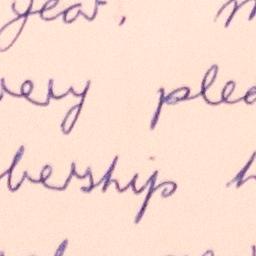 year,
very plea
bership h